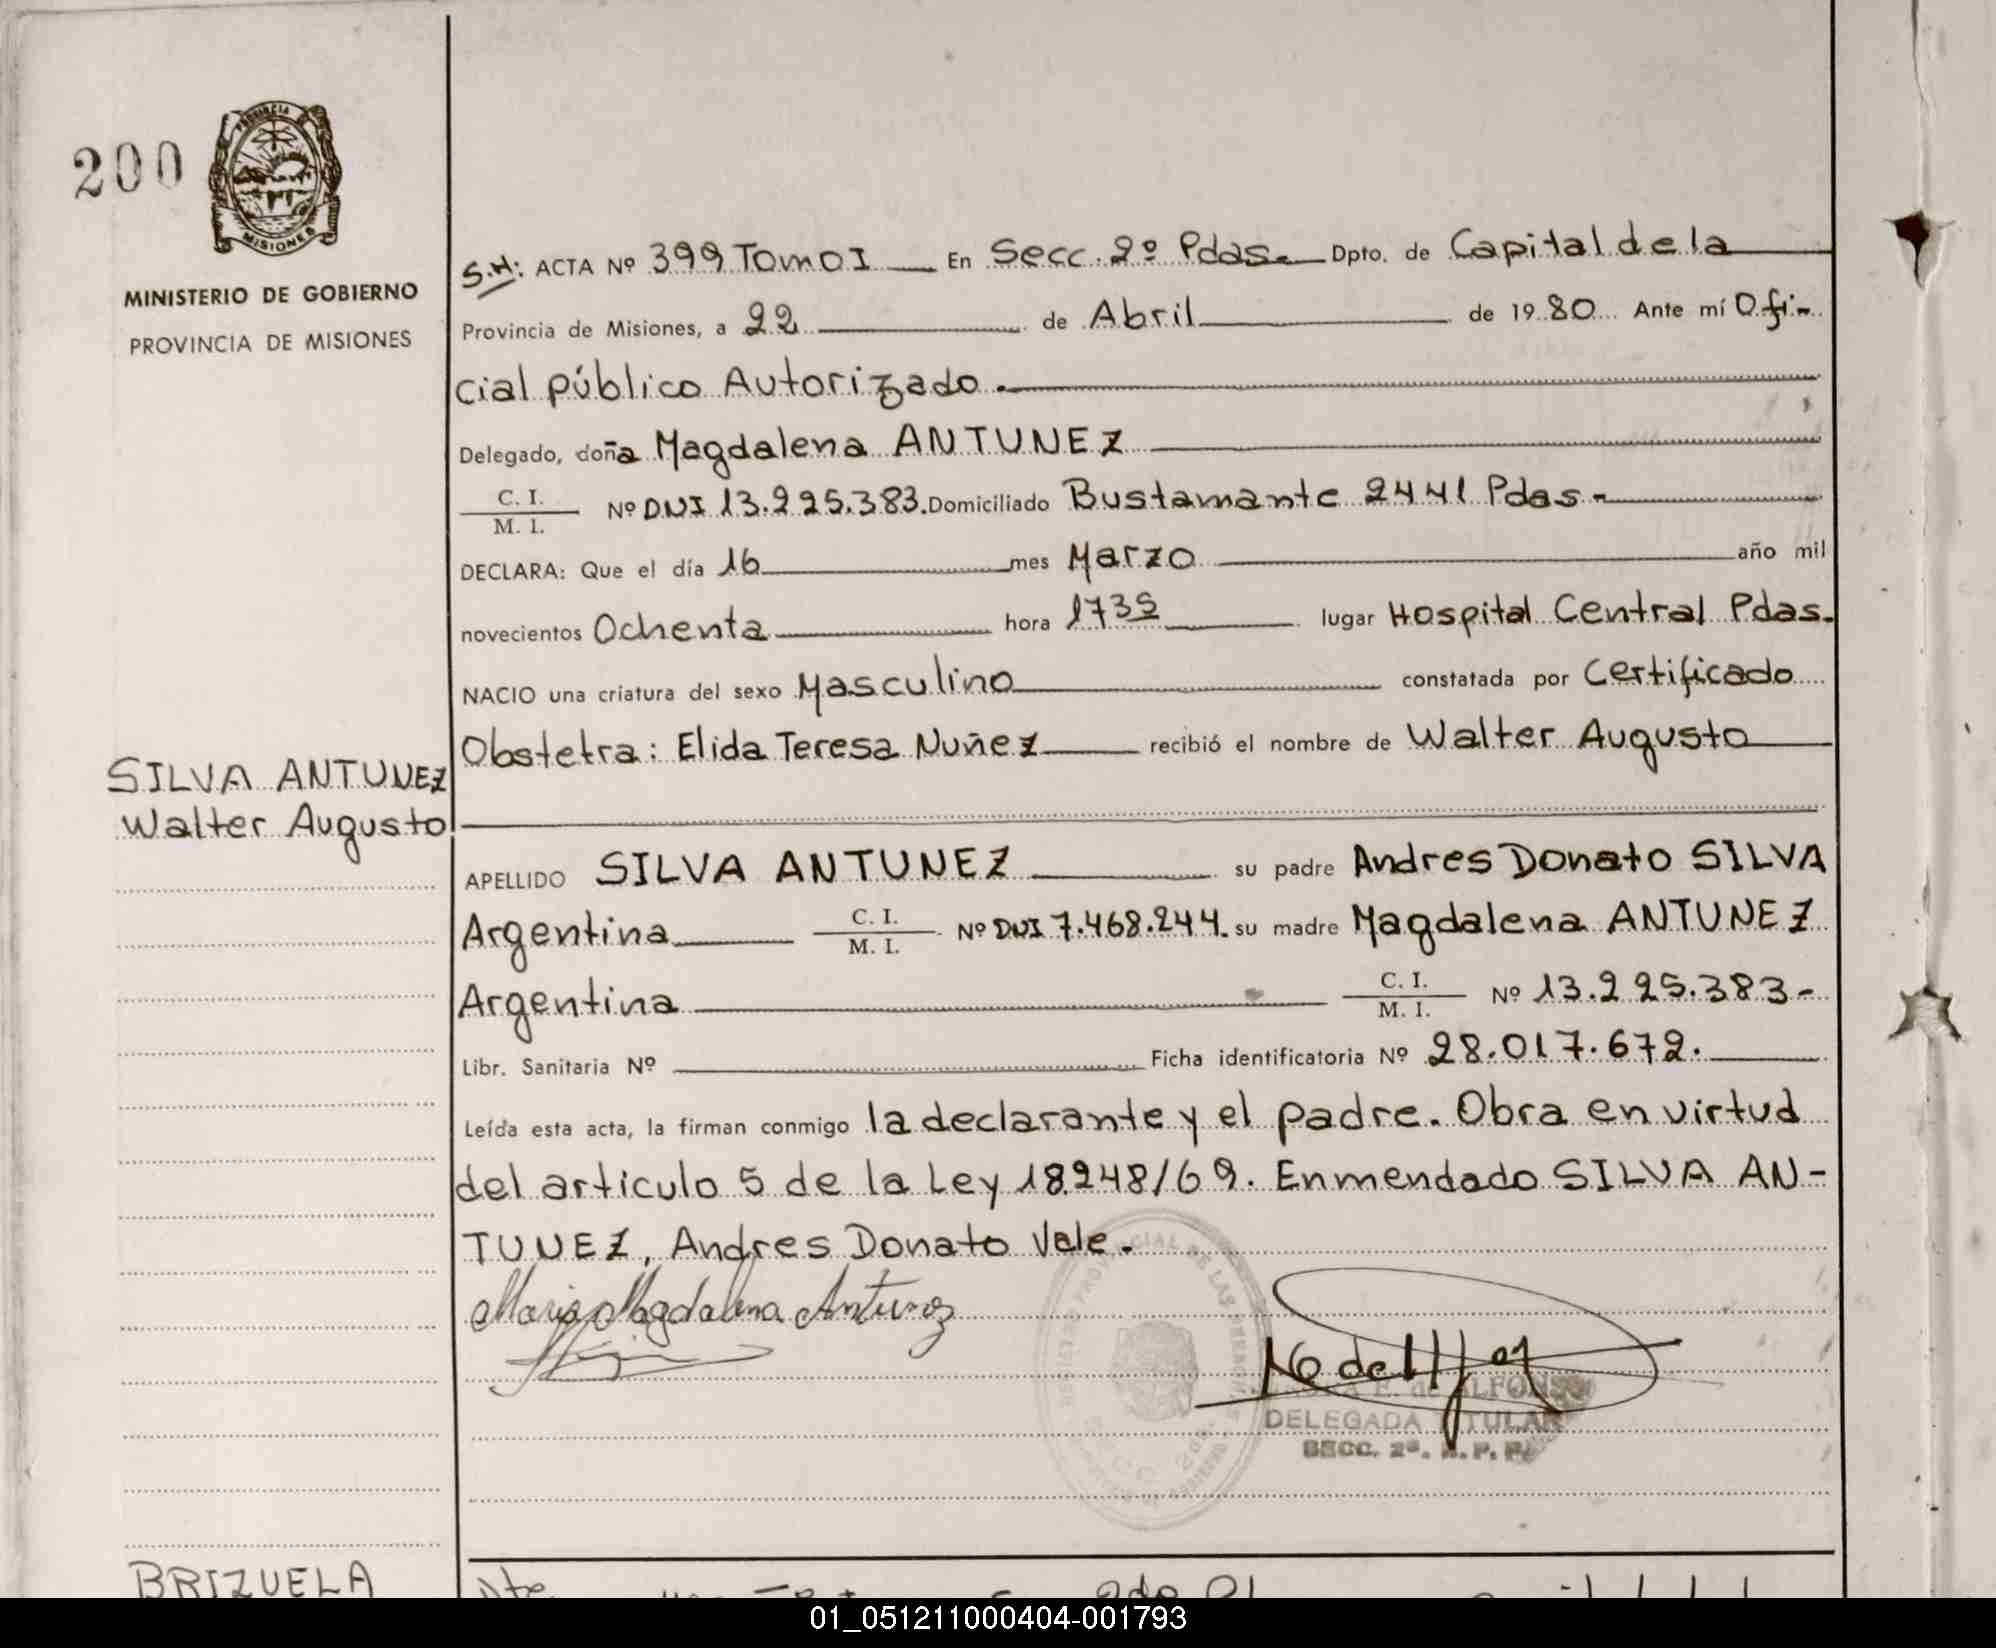 200
PROVINCIA
MISIONES
MINISTERIO DE GOBIERNO
PROVINCIA DE MISIONES
S.H: ACTA Nº 399 Tomo I En Secc. 2º Pdas. Dpto. de Capital de la
Provincia de Misiones, a 22 de Abril de 1980 Ante mí Ofi-
cial público Autorizado.
Delegado, doña Magdalena ANTUNEZ
C. I.
M. I. Nº DNI 13.225.383. Domiciliado Bustamante 2441 Pdas-
DECLARA: Que el día 16 mes Marzo año mil
novecientos Ochenta hora 1735 lugar Hospital Central Pdas.
NACIO una criatura del sexo Masculino constatada por Certificado
Obstetra: Elida Teresa Nuñez recibió el nombre de Walter Augusto
SILVA ANTUNEZ
Walter Augusto
APELLIDO SILVA ANTUNEZ su padre Andres Donato SILVA
Argentina C. I. M. I. Nº DNI 7.468.244. su madre Magdalena ANTUNEZ
Argentina C. I. M. I. Nº 13.225.383-
Libr. Sanitaria Nº Ficha identificatoria Nº 28.017.672.
Leída esta acta, la firman conmigo la declarante y el padre. Obra en virtud
del articulo 5 de la Ley 18248/69. Enmendado SILVA AN-
TUNEZ, Andres Donato Vale.
Maria Magdalena Antunez
E. de ALFONSO
DELEGADA TITULAR
SECC. 2ª. R. P. P.
BRIZUELA
01_051211000404-001793